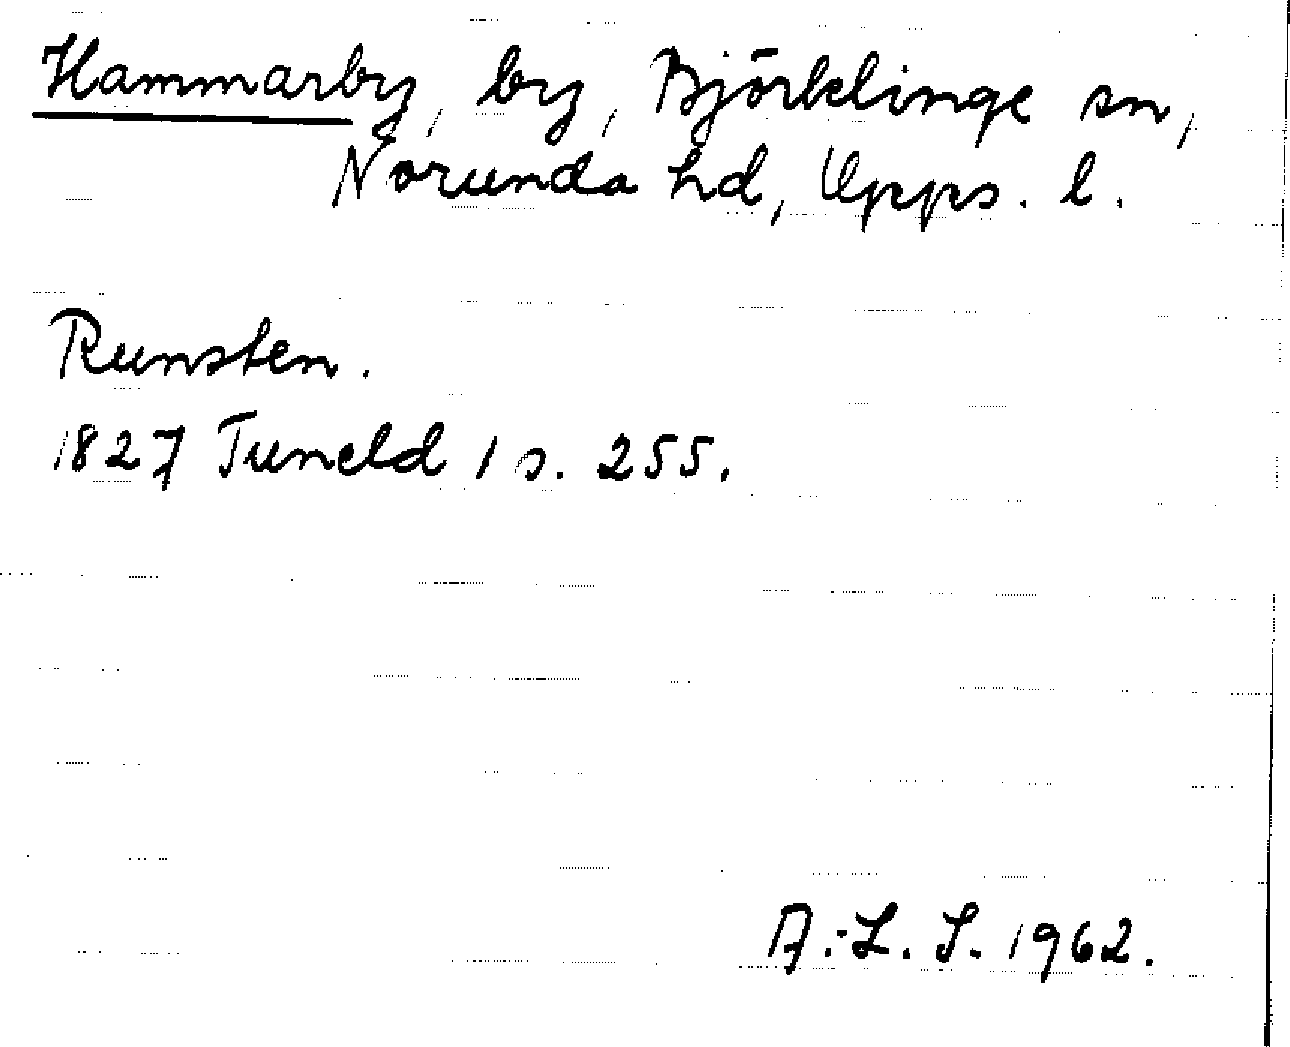 Hammarby, by, Björklinge sn,
Norunda hd, Upps. l.
Runsten.
1827 Tuneld 1 s. 255.
A.-L. S. 1962.